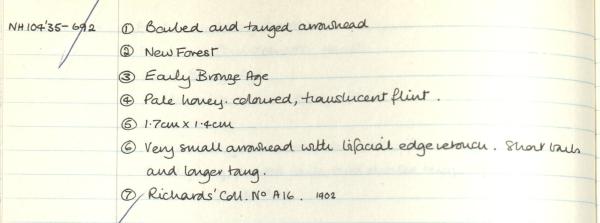 NH104'35-692
① Barbed and tanged arrowhead
② New Forest
③ Early Bronze Age
④ Pale honey. coloured, translucent flint.
⑤ 1.7cm x 1.4cm
⑥ Very small arrowhead with bifacial edge retouch. Short barbs
and longer tang.
⑦ Richards' Coll. No A16. 1902